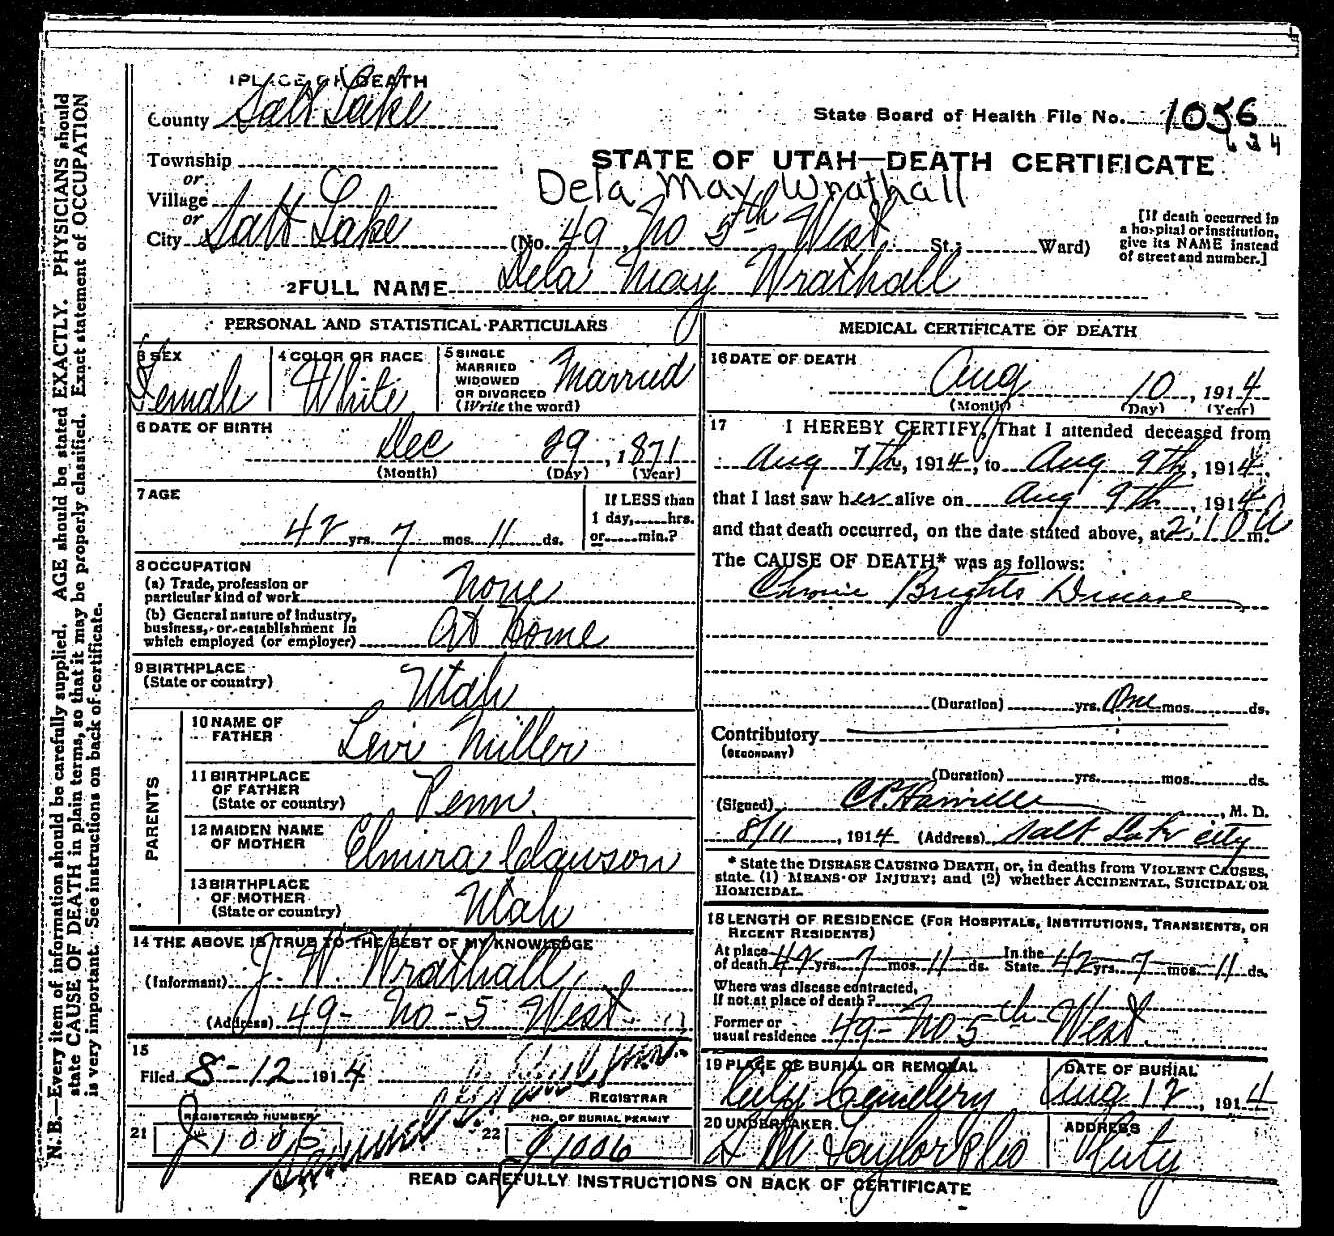 1 PLACE OF DEATH
County Salt Lake
State Board of Health File No. 1056
634
Township
or
Village
or
City Salt Lake
STATE OF UTAH—DEATH CERTIFICATE
Dela May Wrathall
(No. 49 No 5th West St.; Ward)
[If death occurred in
a hospital or institution,
give its NAME instead
of street and number.]
2 FULL NAME Dela May Wrathall
PERSONAL AND STATISTICAL PARTICULARS
3 SEX
Female
4 COLOR OR RACE
White
5 SINGLE
MARRIED
WIDOWED
OR DIVORCED
(Write the word)
Married
6 DATE OF BIRTH
Dec 29, 1871
(Month) (Day) (Year)
7 AGE
42 yrs. 7 mos. 11 ds.
If LESS than
1 day, hrs.
or min.?
8 OCCUPATION
(a) Trade, profession or
particular kind of work None
(b) General nature of industry,
business, or establishment in
which employed (or employer) At Home
9 BIRTHPLACE
(State or country) Utah
PARENTS
10 NAME OF
FATHER Levi Miller
11 BIRTHPLACE
OF FATHER
(State or country) Penn.
12 MAIDEN NAME
OF MOTHER Elmira Clawson
13 BIRTHPLACE
OF MOTHER
(State or country) Utah
14 THE ABOVE IS TRUE TO THE BEST OF MY KNOWLEDGE
(Informant) J. W. Wrathall
(Address) 49- No - 5 West
15
Filed 8-12 1914
REGISTRAR
21 REGISTERED NUMBER
J1006
22 NO. OF BURIAL PERMIT
J1006
MEDICAL CERTIFICATE OF DEATH
16 DATE OF DEATH
Aug 10, 1914
(Month) (Day) (Year)
17 I HEREBY CERTIFY, That I attended deceased from
Aug 7th, 1914, to Aug 9th, 1914,
that I last saw her alive on Aug 9th, 1914
and that death occurred, on the date stated above, at 2:10 A m.
The CAUSE OF DEATH* was as follows:
Chronic Brights Disease
(Duration) yrs. One mos. ds.
Contributory
(SECONDARY)
(Duration) yrs. mos. ds.
(Signed) , M. D.
8/11, 1914 (Address) Salt Lake City
* State the DISEASE CAUSING DEATH, or, in deaths from VIOLENT CAUSES,
state (1) MEANS OF INJURY; and (2) whether ACCIDENTAL, SUICIDAL OR
HOMICIDAL.
18 LENGTH OF RESIDENCE (FOR HOSPITALS, INSTITUTIONS, TRANSIENTS, OR
RECENT RESIDENTS)
At place
of death 42 yrs. 7 mos. 11 ds. In the
State 42 yrs. 7 mos. 11 ds.
Where was disease contracted,
If not at place of death?
Former or
usual residence 49- No 5th West
19 PLACE OF BURIAL OR REMOVAL
City Cemetery
DATE OF BURIAL
Aug 12, 1914
20 UNDERTAKER
S M Taylor & Co
ADDRESS
City
READ CAREFULLY INSTRUCTIONS ON BACK OF CERTIFICATE
N. B.—Every item of information should be carefully supplied. AGE should be stated EXACTLY. PHYSICIANS should
state CAUSE OF DEATH in plain terms, so that it may be properly classified. Exact statement of OCCUPATION
is very important. See instructions on back of certificate.